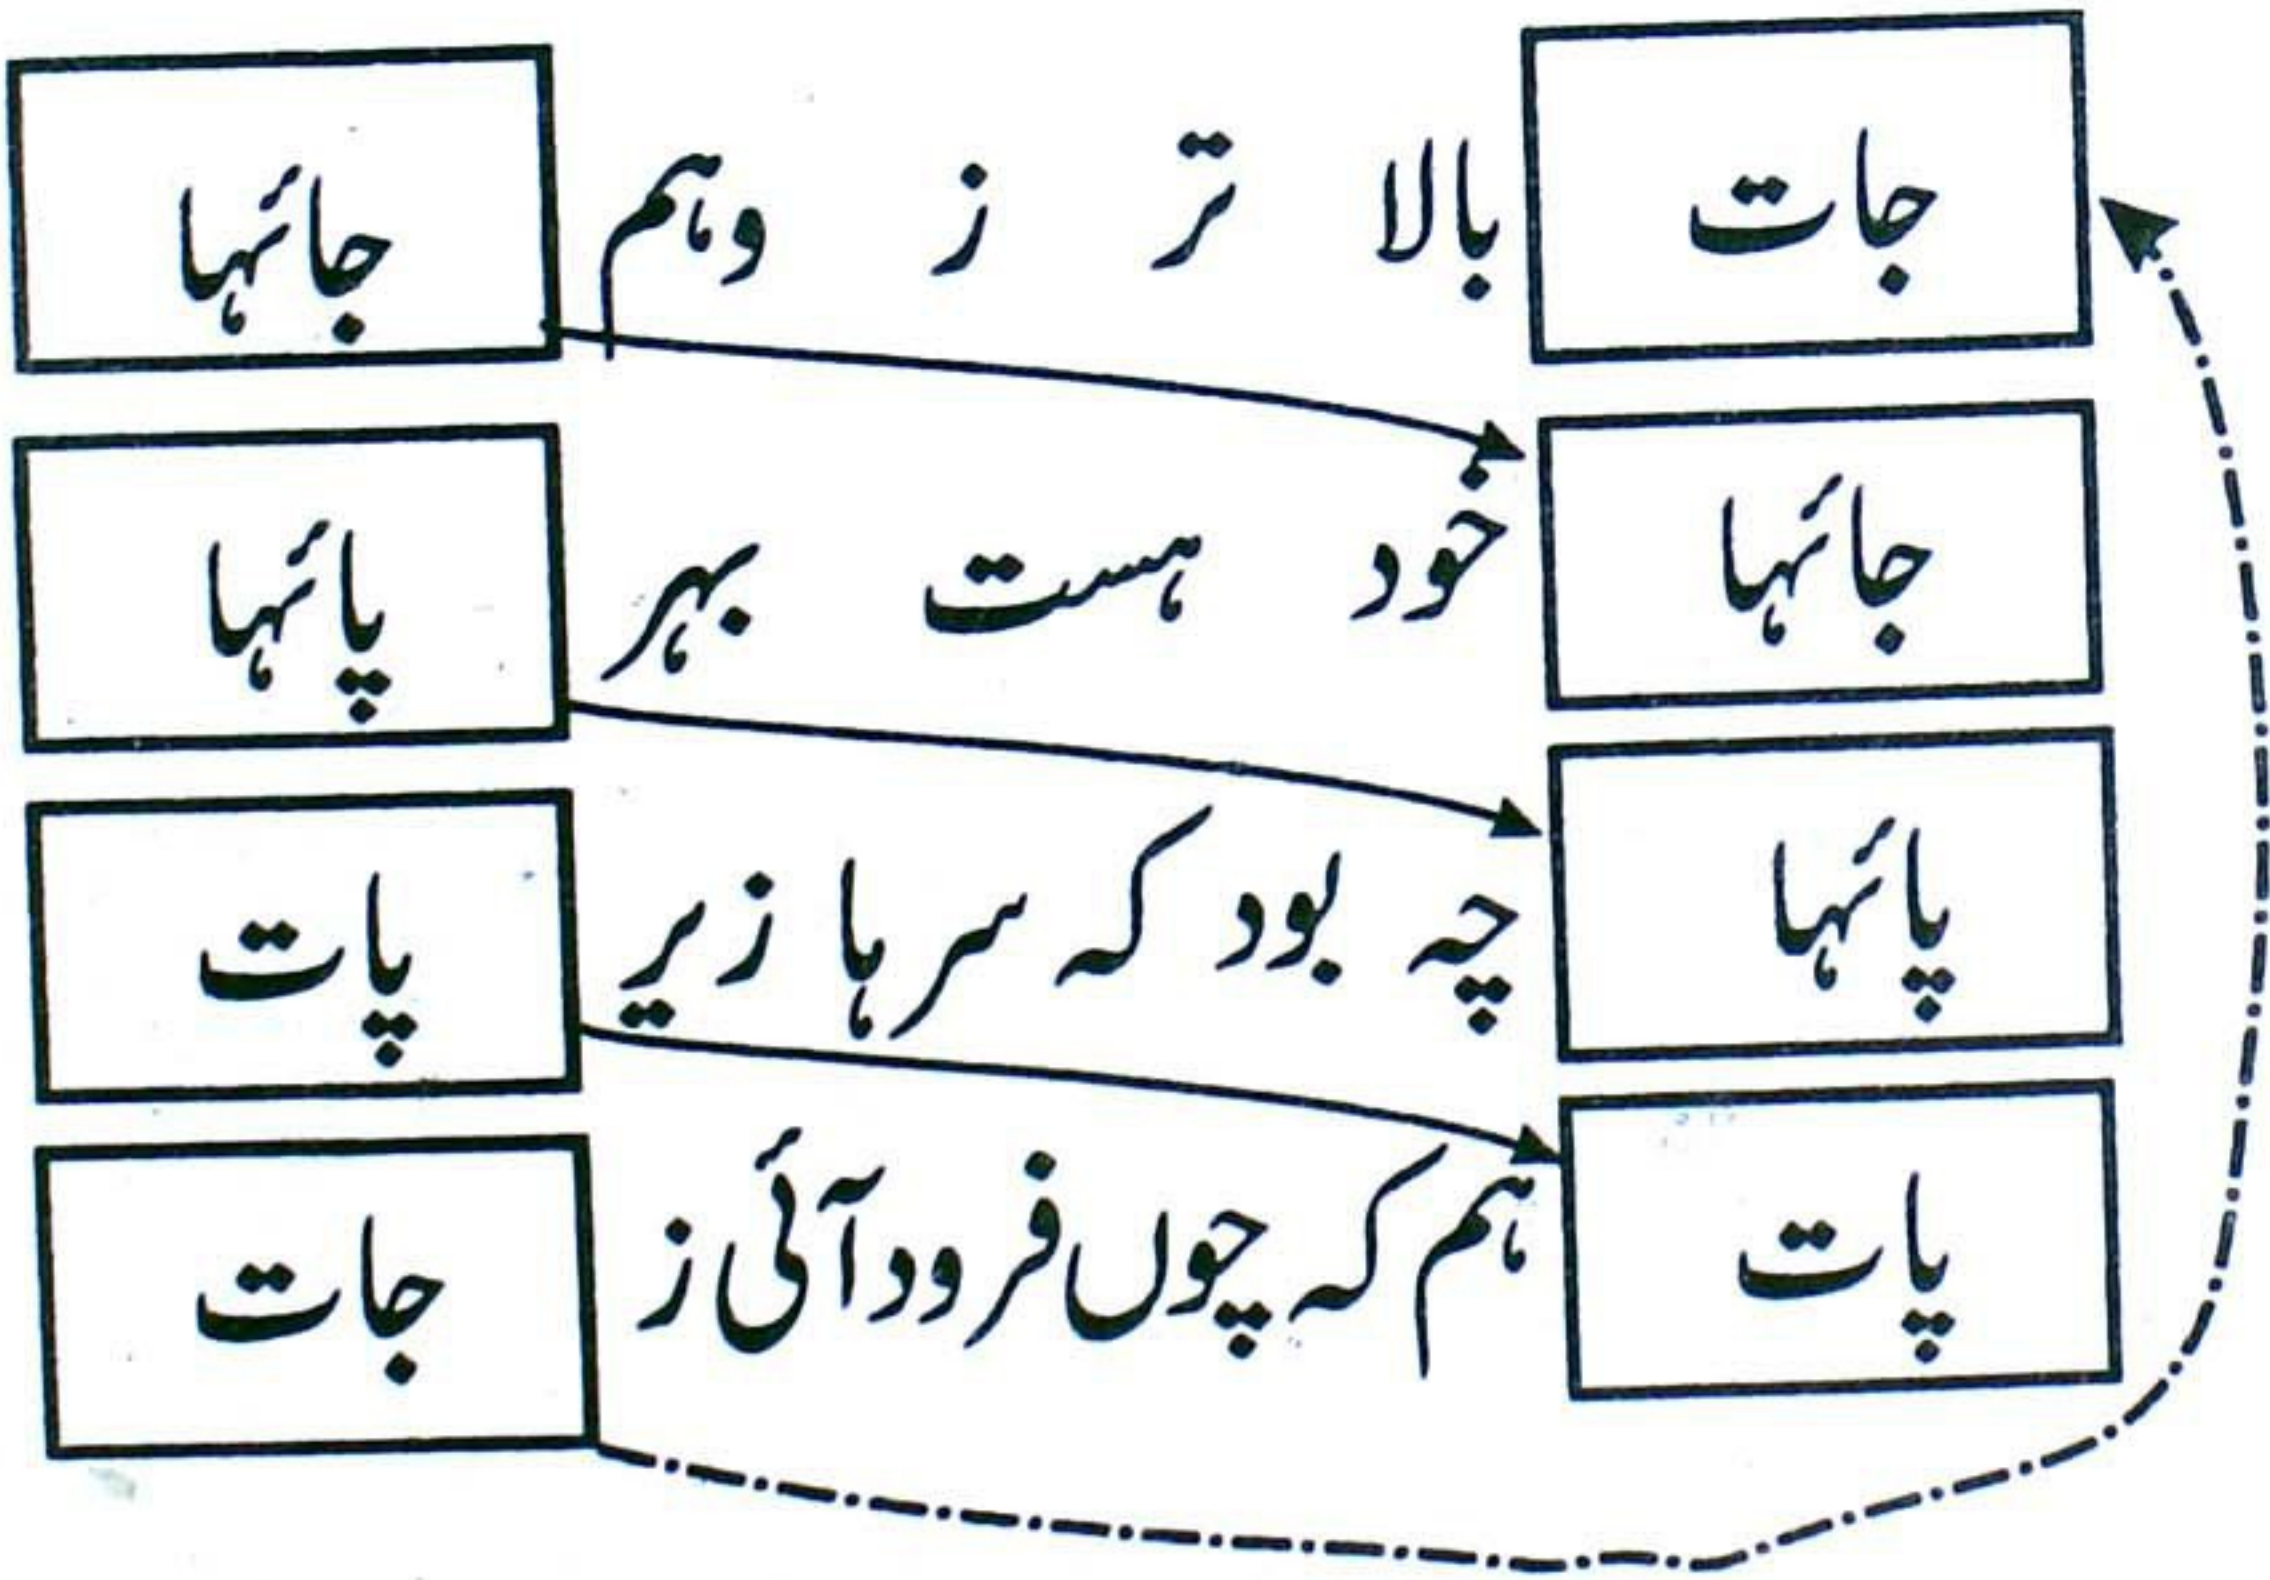 جات بالا تر ز وہم جائہا
جائہا خود ہست بہر پائہا
پائہا چہ بود کہ سرہا زیر پات
پات ہم کہ چوں فرود آئی ز جات